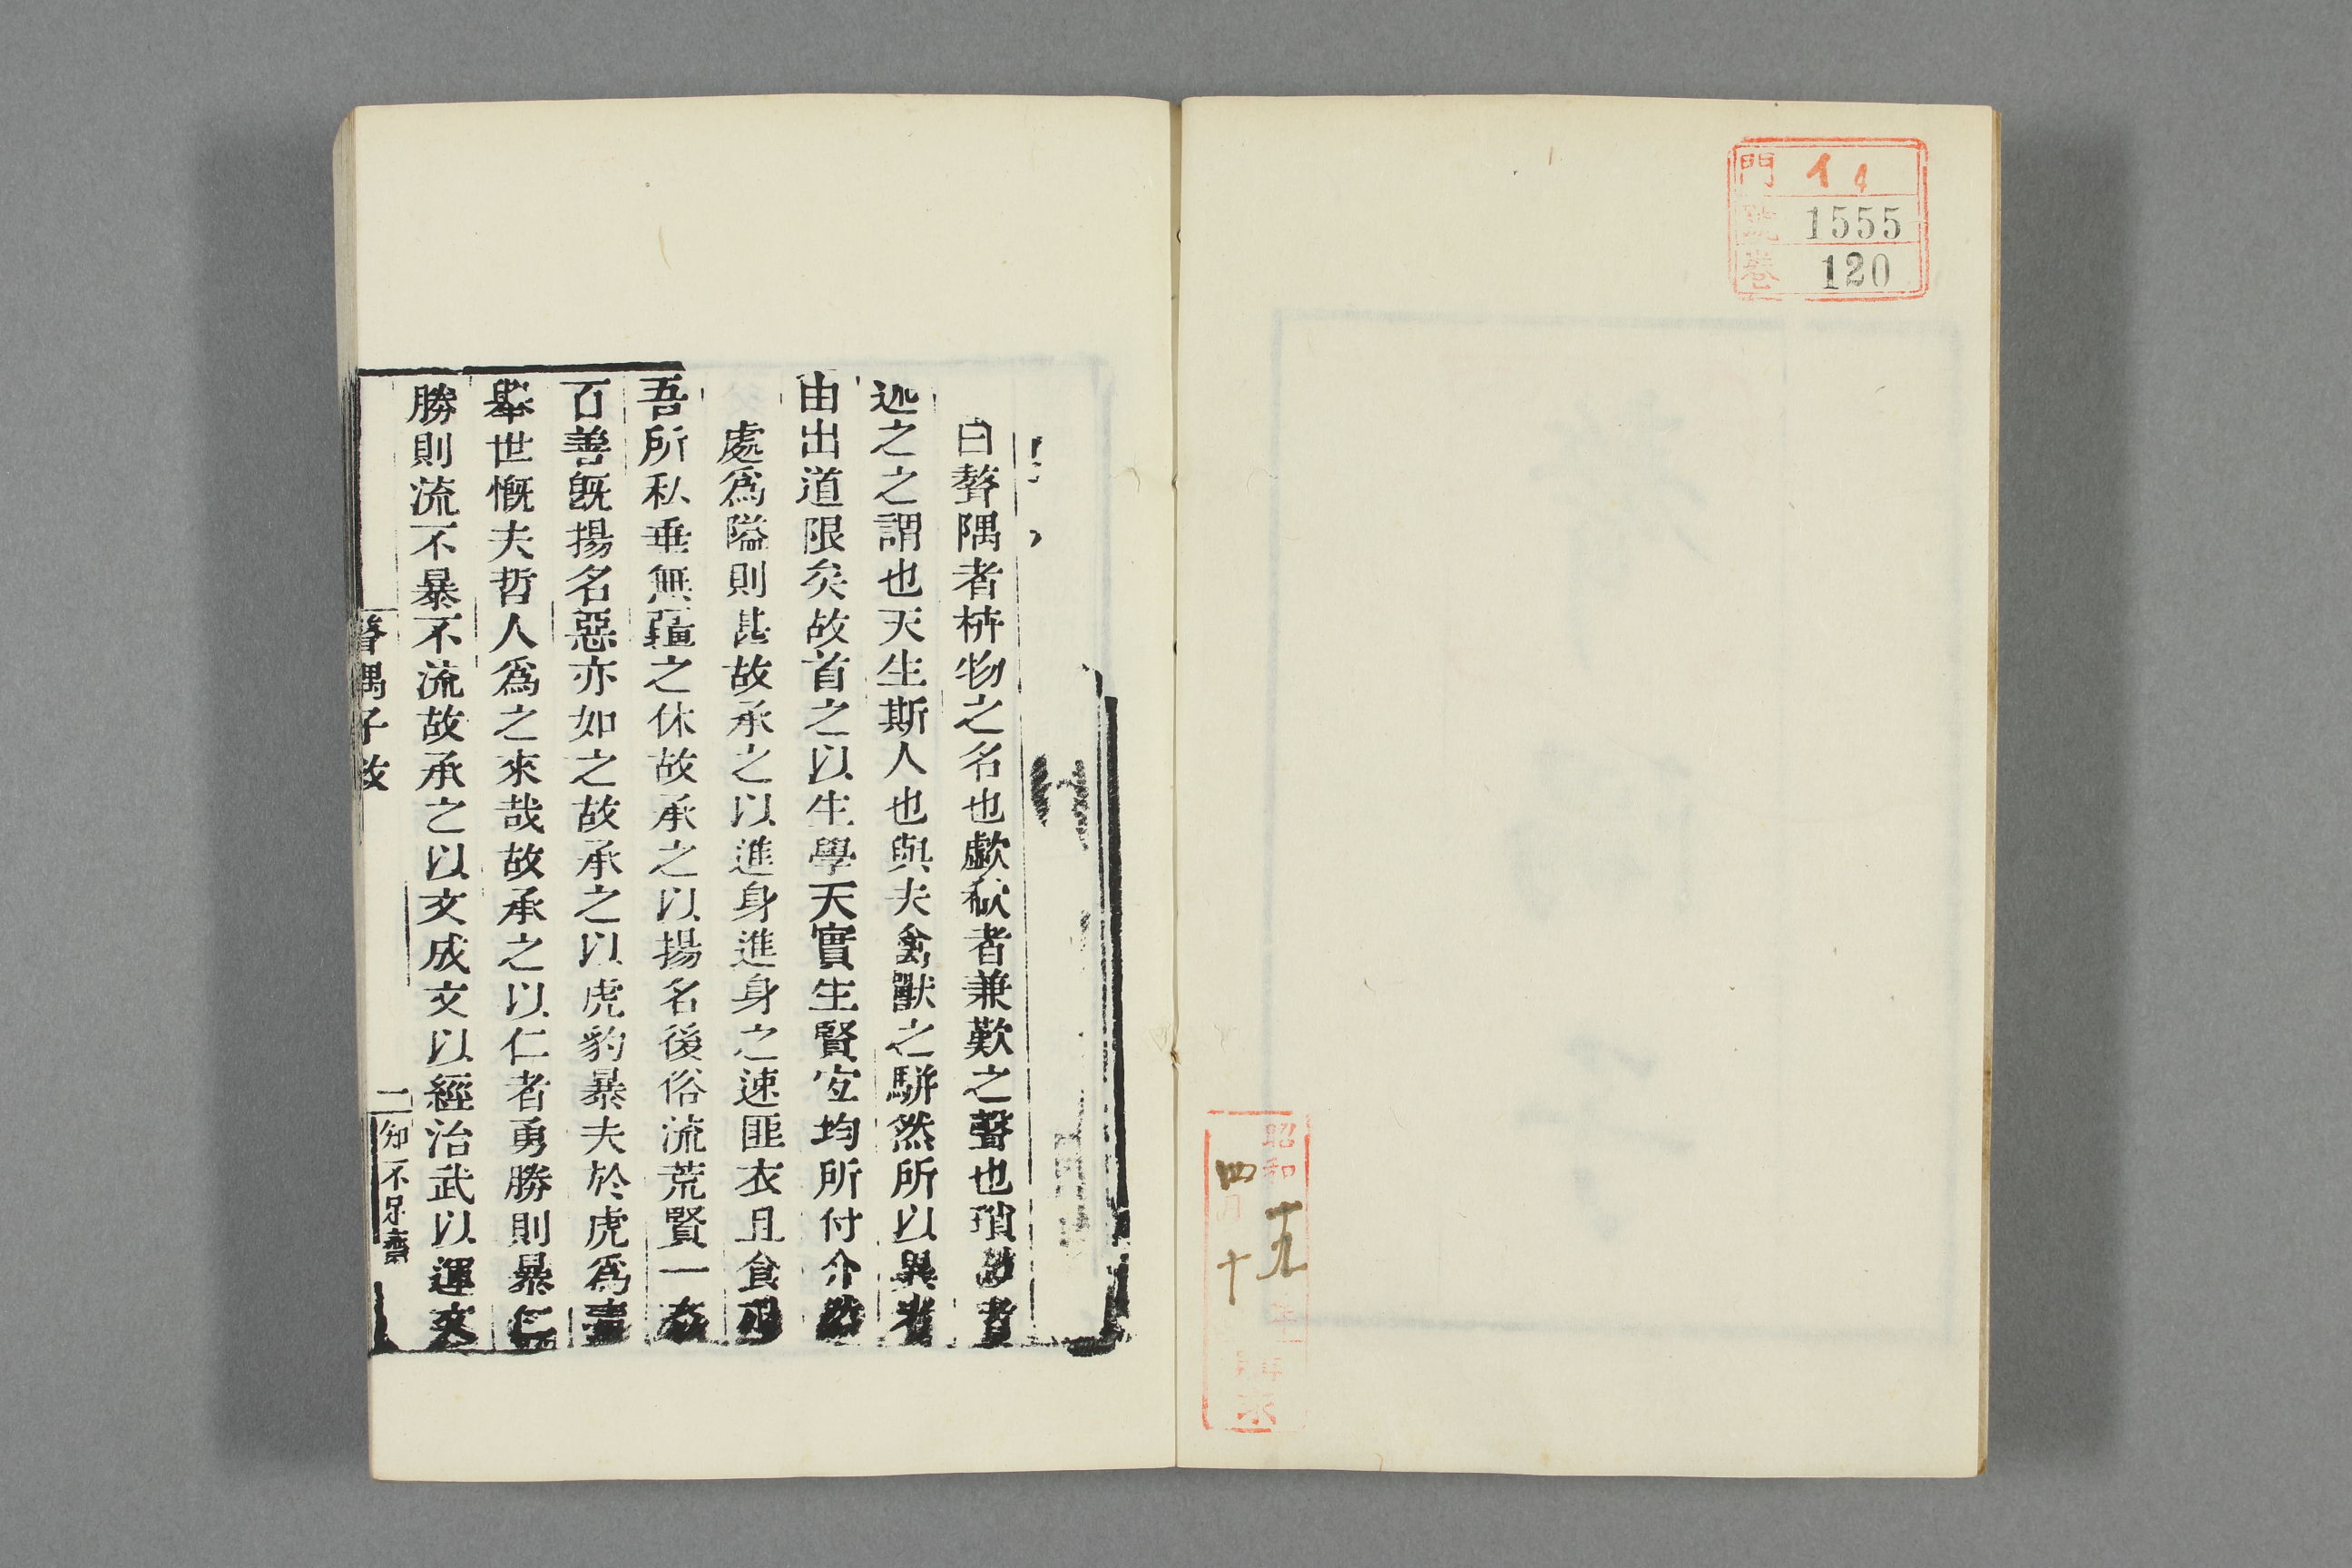 門 イ4
號 1555
卷 120
昭和一九年
四月十
購求
曰聱隅者枿物之名也歔欷者兼歎之聲也瑣㣲者
迹之之謂也天生斯人也與夫禽獸之駢然所以異者
由出道限矣故首之以生學天實生賢宐均所付介然
處爲隘則甚故承之以進身進身之速匪衣且食乃
吾所私垂無疆之休故承之以揚名後俗流荒賢一在
百善旣揚名惡亦如之故承之以虎豹暴夫於虎爲害
舉世慨夫哲人爲之來哉故承之以仁者勇勝則暴仁
勝則流不暴不流故承之以文成文以經治武以運文
聱隅子敘
二 知不足齋